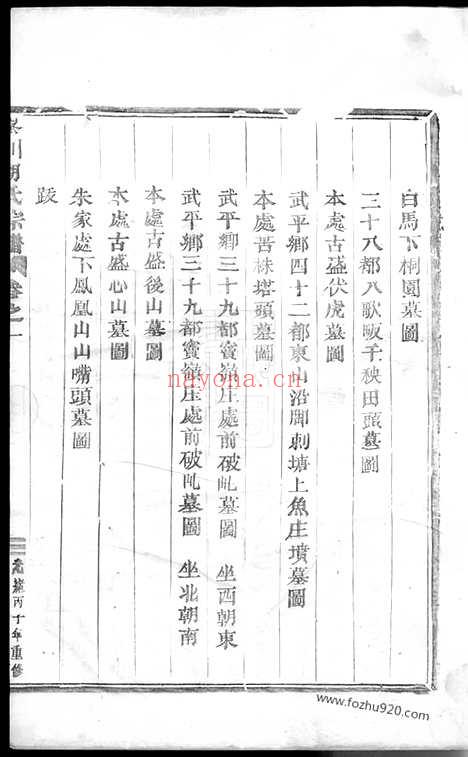 白馬下桐園墓圖
三十八都八歌畈千秧田頭墓圖
本處古盛伏虎墓圖
武平鄉四十二都東山沿脚剌塘上魚庄墳墓圖
本處苦株塔頭墓圖
武平鄉三十九都賓嶺庄處前破凪墓圖 坐西朝東
武平鄉三十九都賓嶺庄處前破凪墓圖 坐北朝南
本處古盛後山墓圖
本處古盛心山墓圖
朱家處下鳳凰山山嘴頭墓圖
跋
川胡氏宗譜 卷之一
光緒丙子年重修
nayona.cn
www.fozhu920.com